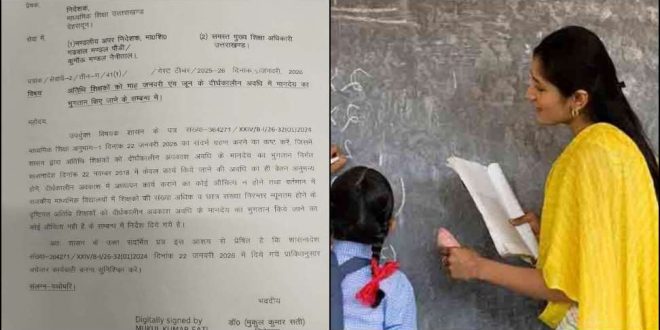 प्रेषक,
निदेशक,
माध्यमिक शिक्षा उत्तराखण्ड
देहरादून।
सेवा में,
(1) मण्डलीय अपर निदेशक, मा०शि०
(2) समस्त मुख्य शिक्षा अधिकारी
गढ़वाल मण्डल पौड़ी/
उत्तराखण्ड।
कुमाँऊ मण्डल नैनीताल।
पत्रांक/सेवायें-2/तीन-/41(1)/ /गेस्ट टीचर/2025-26 दिनांक जनवरी, 2026
विषय अतिथि शिक्षकों को माह जनवरी एवं जून के दीर्घकालीन अवधि में मानदेय का
भुगतान किए जाने के सम्बन्ध में।
महोदय,
उपर्युक्त विषयक शासन के पत्र संख्या-364271/XXIV/B-I/26-32(01)2024
माध्यमिक शिक्षा अनुभाग-1 दिनांक 22 जनवरी 2026 का संदर्भ ग्रहण करने का कष्ट करें, जिसमें
शासन द्वारा अतिथि शिक्षकों को दीर्घकालीन अवकाश अवधि के मानदेय का भुगतान निर्गत
शासनादेश दिनांक 22 नवम्बर 2018 में केवल कार्य किये जाने की अवधि का ही वेतन अनुमन्य
होने, दीर्घकालीन अवकाश में अध्यापन कार्य कराने का कोई औचित्य न होने तथा वर्तमान में
राजकीय माध्यमिक विद्यालयों में शिक्षकों की संख्या अधिक व छात्र संख्या निरन्तर न्यूनतम होने के
दृष्टिगत अतिथि शिक्षकों को दीर्घकालीन अवकाश अवधि के मानदेय का भुगतान किये जाने का
कोई औचित्य नहीं है के सम्बन्ध में निर्देश दिये गये हैं।
अतः शासन के उक्त सन्दर्भित पत्र इस आशय से प्रेषित है कि शासनादेश
संख्या-364271/XXIV/B-I/26-32(01)2024 दिनांक 22 जनवरी 2026 में दिये गये प्राविधानुसार
अग्रेत्तर कार्यवाही करना सुनिश्चित करें।
संलग्न-यथोपरि।
भवदीय
Digitally signed by
MUKUL KUMAR SATI
डॉ० (मुकुल कुमार सती)